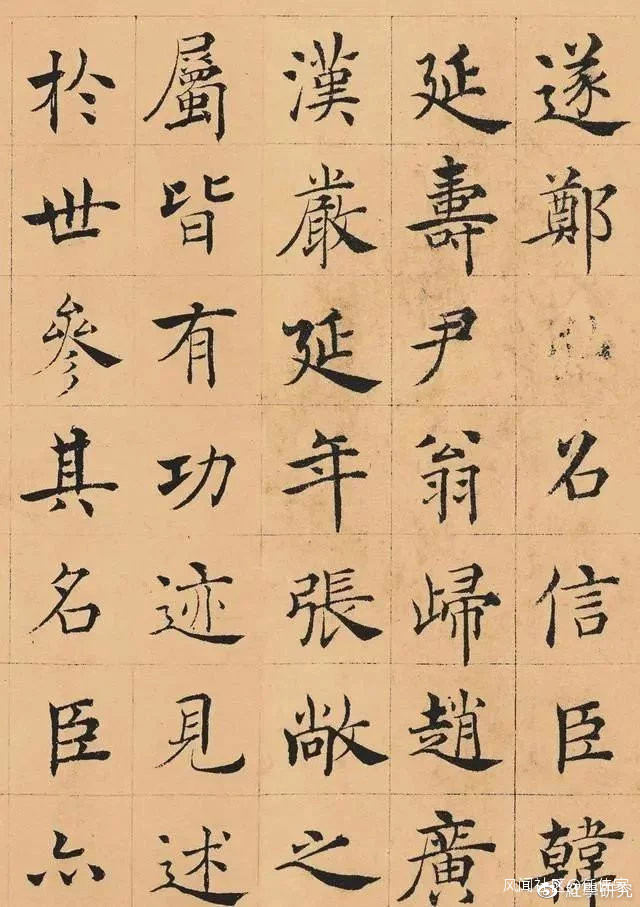 遂鄭召信臣韓
延壽尹翁歸趙廣
漢嚴延年張敞之
屬皆有功迹見述
於世參其名臣亦
风闻社区
紅學研究